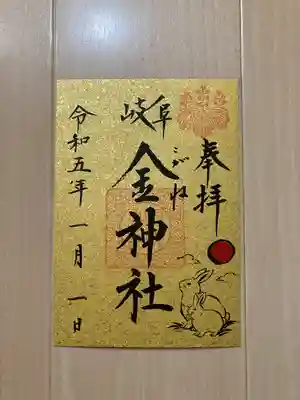 奉拝
岐阜
金神社
こがね
令和五年一月一日